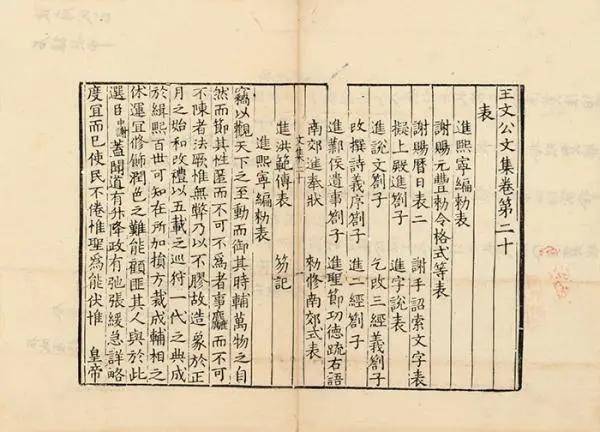 王文公文集卷第二十
表
進熙寧編勅表
謝賜元豐勅令格式等表
謝賜曆日表二　謝手詔索文字表
擬上殿進劄子　進字說表
進說文劄子　乞改三經義劄子
改撰詩義序劄子　進二經劄子
進鄴侯遺事劄子　進聖節功德疏右語
南郊進奉狀　勑修南郊式表
文集二十　一
進洪範傳表　笏記
進熙寧編勅表
竊以觀天下之至動而御其時輔萬物之自
然而節其性匿而不可不為者事麤而不可
不陳者法歟惟無弊乃以不膠故造象於正
月之始和改禮以五載之巡狩一代之典成
於緝熙百世可知在所加損方裁成輔相之
休運宜修飾潤色之難能顧匪其人與於此
選臣中謝蓋聞道有升降政有弛張緩急詳略
度宜而已使民不倦惟聖為能伏惟　皇帝